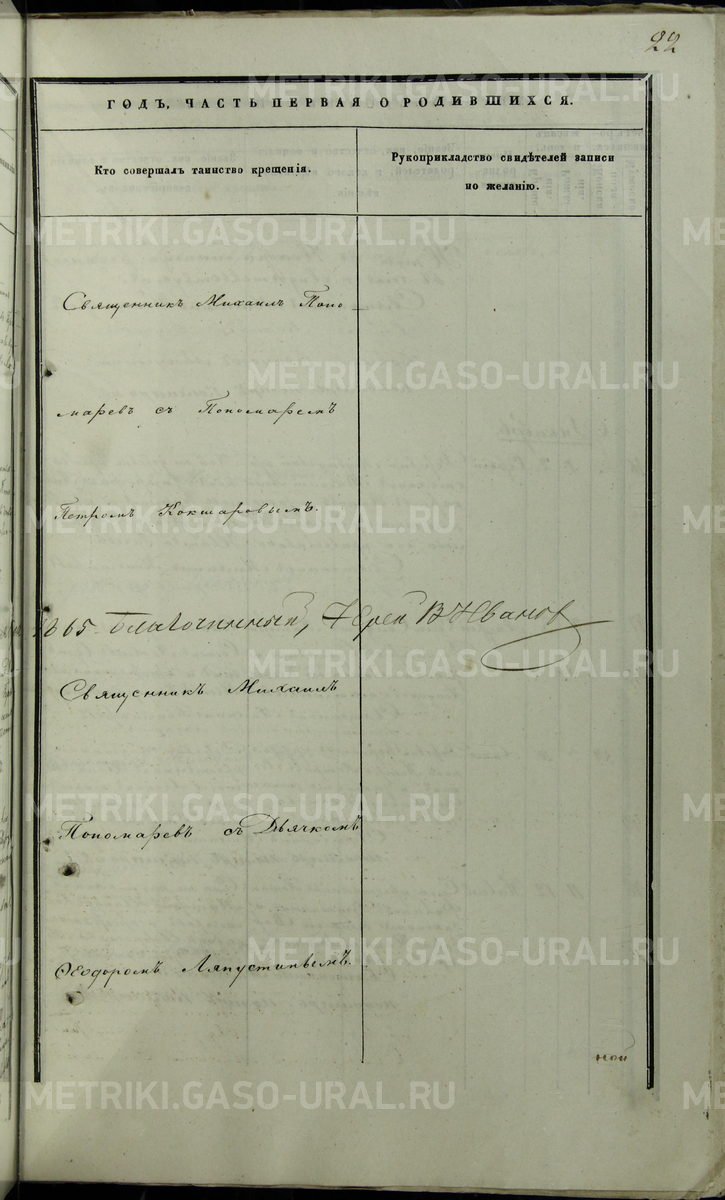 22
ГОДЪ, ЧАСТЬ ПЕРВАЯ О РОДИВШИХСЯ.
Кто совершалъ таинство крещенія.
Рукоприкладство свидѣтелей записи
по желанію.
Священникъ Михаилъ Поно
маревъ съ Пономаремъ
Петромъ Кокшаровымъ.
1865 Благочинный, Іерей В Иванов
Священникъ Михаилъ
Пономаревъ съ Дьячкомъ
Ѳеодоромъ Ляпустинымъ.
ной
METRIKI.GASO-URAL.RU